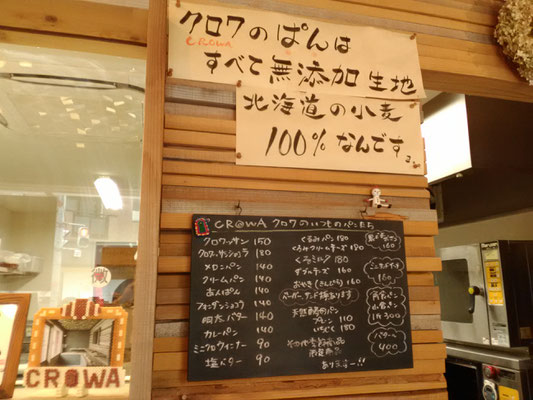 クロワのぱんは
CROWA
すべて無添加生地
北海道の小麦
100%なんです。
CROWA クロワのいつものパンたち
クロワッサン 150
クロワッサンショコラ 180
メロンパン 140
クリームパン 140
あんぱん 140
フォンダンショコラ 140
明太バター 140
カレーパン 140
ミニクロウィンナー 90
塩バター 90
くるみパン 180
くるみクリームチーズ 190
くろミルク 180
ダブルチーズ 160
おやき
天然酵母のパン
プレーン 110
いちじく 180
その他
あります!!
160
160
角食パン
山食パン
1斤 300
バタール
400
CROWA